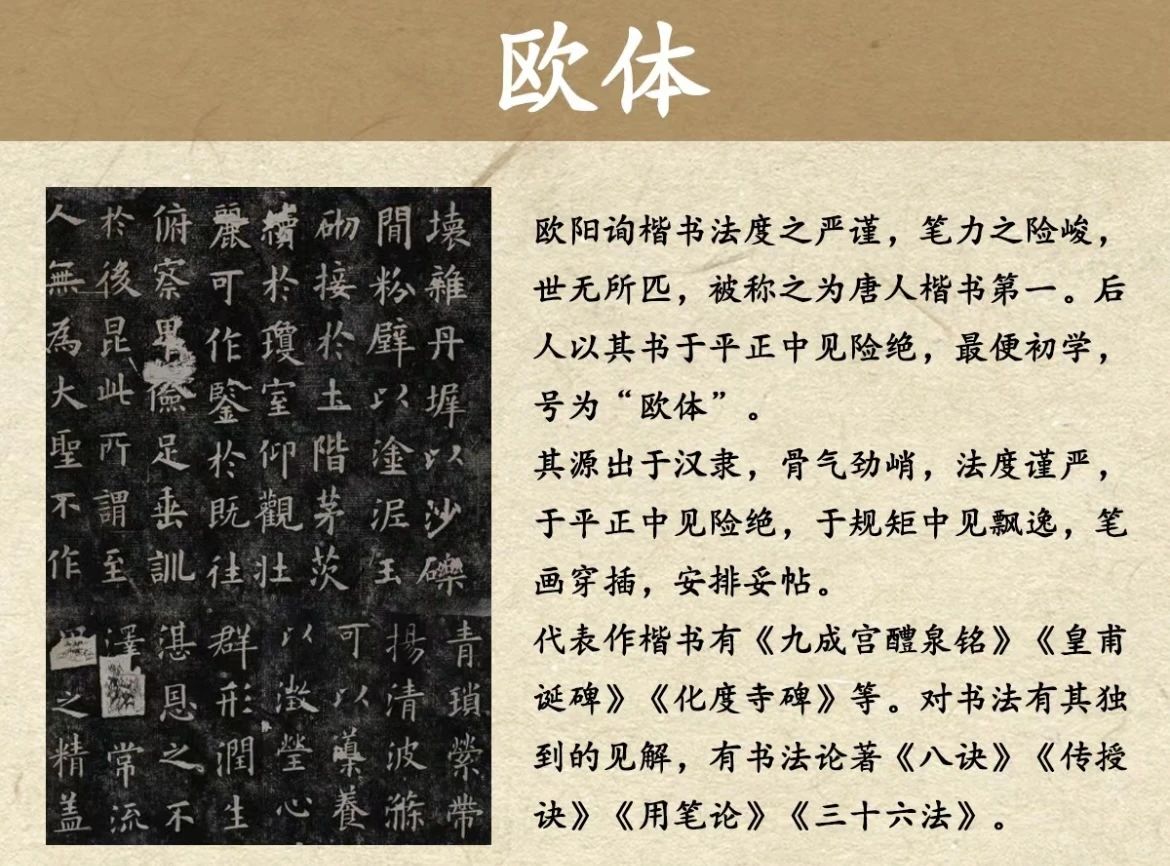 欧体
壊雜丹墀以沙礫
間粉壁以塗泥玉
砌接於土階茅茨
續於瓊室仰觀壯
麗可作鑒於既往
俯察卑儉足垂訓
於後昆此所謂至
人無為大聖不作
青瑣縈帶
揚清波滌
可以導養
以澂瑩心
群形潤生
湛恩之不
澤常流
之精盖
欧阳询楷书法度之严谨，笔力之险峻，
世无所匹，被称之为唐人楷书第一。后
人以其书于平正中见险绝，最便初学，
号为“欧体”。
其源出于汉隶，骨气劲峭，法度谨严，
于平正中见险绝，于规矩中见飘逸，笔
画穿插，安排妥帖。
代表作楷书有《九成宫醴泉铭》《皇甫
诞碑》《化度寺碑》等。对书法有其独
到的见解，有书法论著《八诀》《传授
诀》《用笔论》《三十六法》。